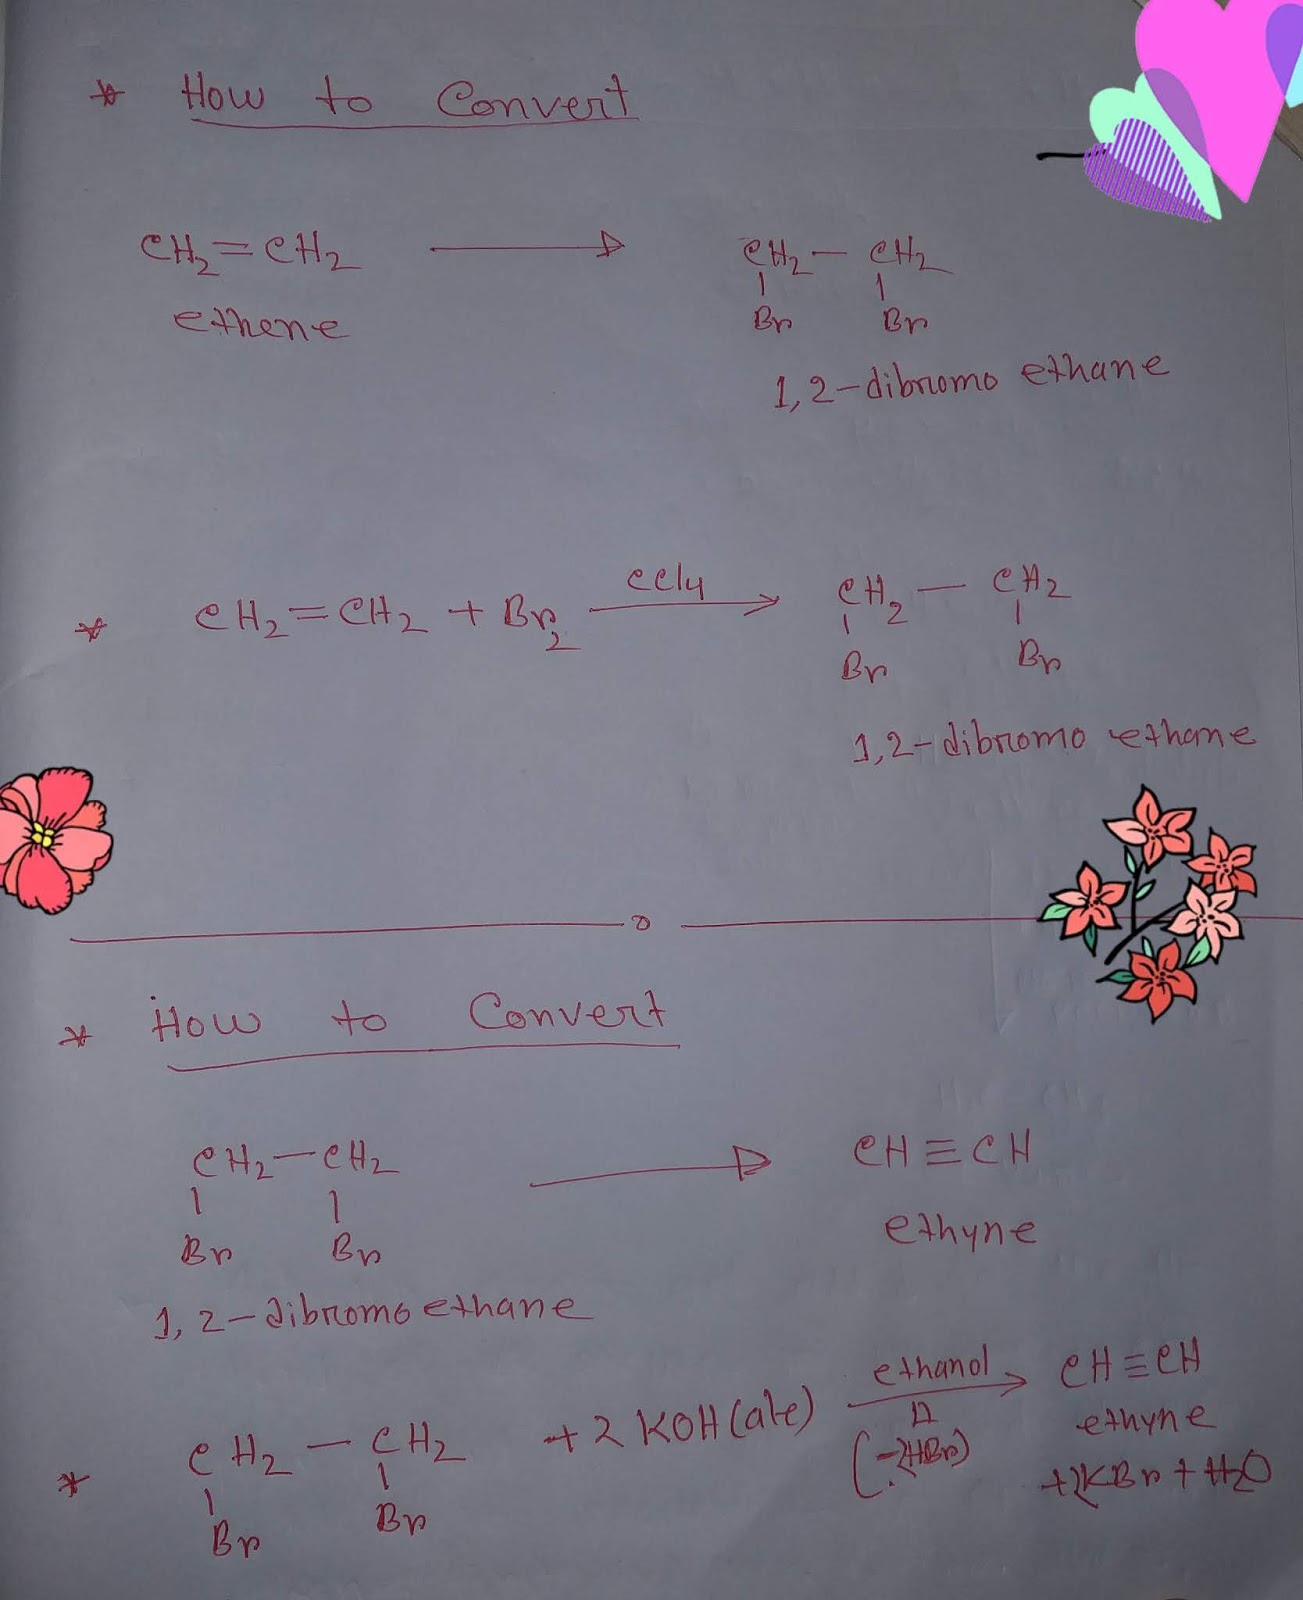 * How to Convert
CH₂=CH₂ → CH₂–CH₂
Br Br
ethene
1,2-dibromo ethane
* CH₂=CH₂ + Br₂ CCl₄ → CH₂–CH₂
Br Br
1,2-dibromo ethane
* How to Convert
CH₂–CH₂ → CH≡CH
Br Br
ethyne
1,2-dibromo ethane
* CH₂–CH₂ + 2 KOH (alc) ethanol → CH≡CH
Br Br
Δ
(-2HBr)
ethyne
+2KBr + H₂O